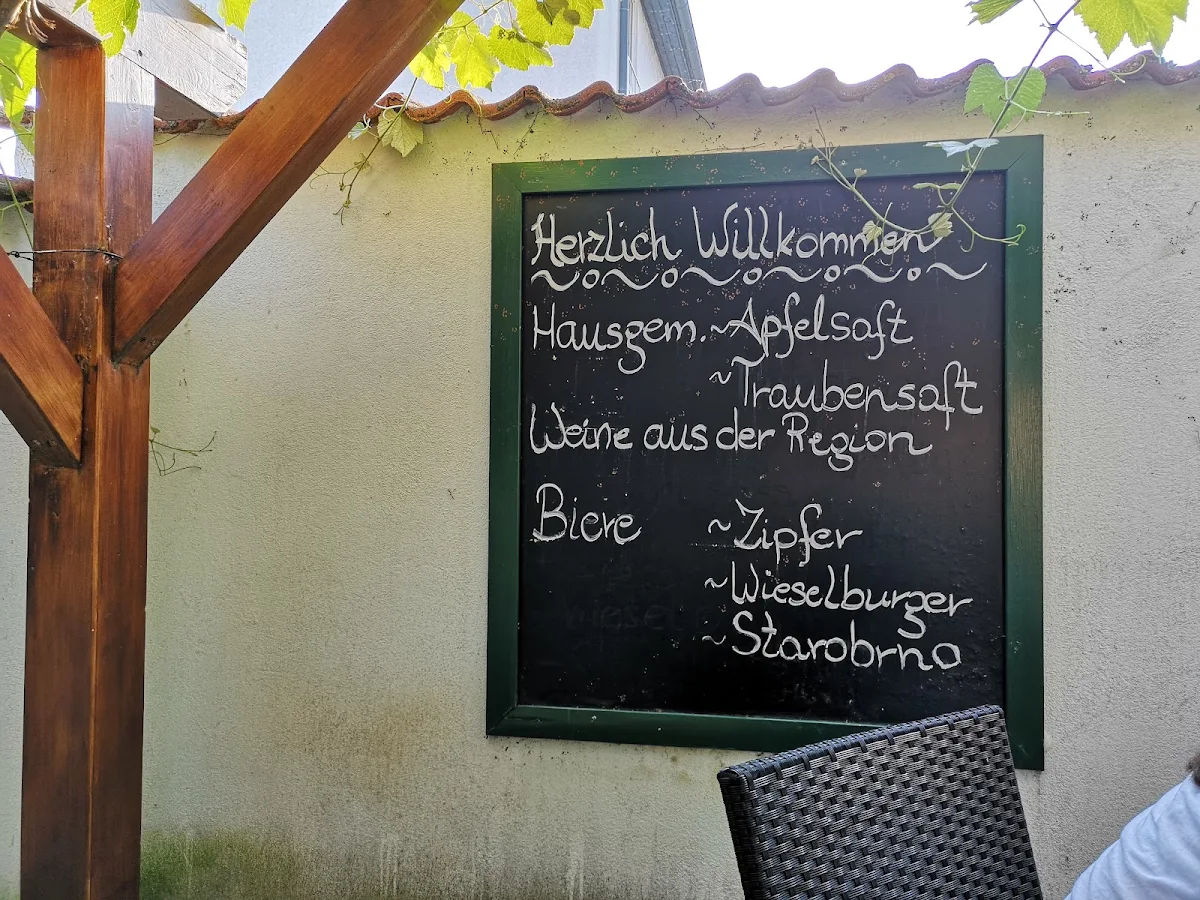 Herzlich Willkommen
Hausgem. ~Apfelsaft
~Traubensaft
Weine aus der Region
Biere ~Zipfer
~Wieselburger
~Starobrno